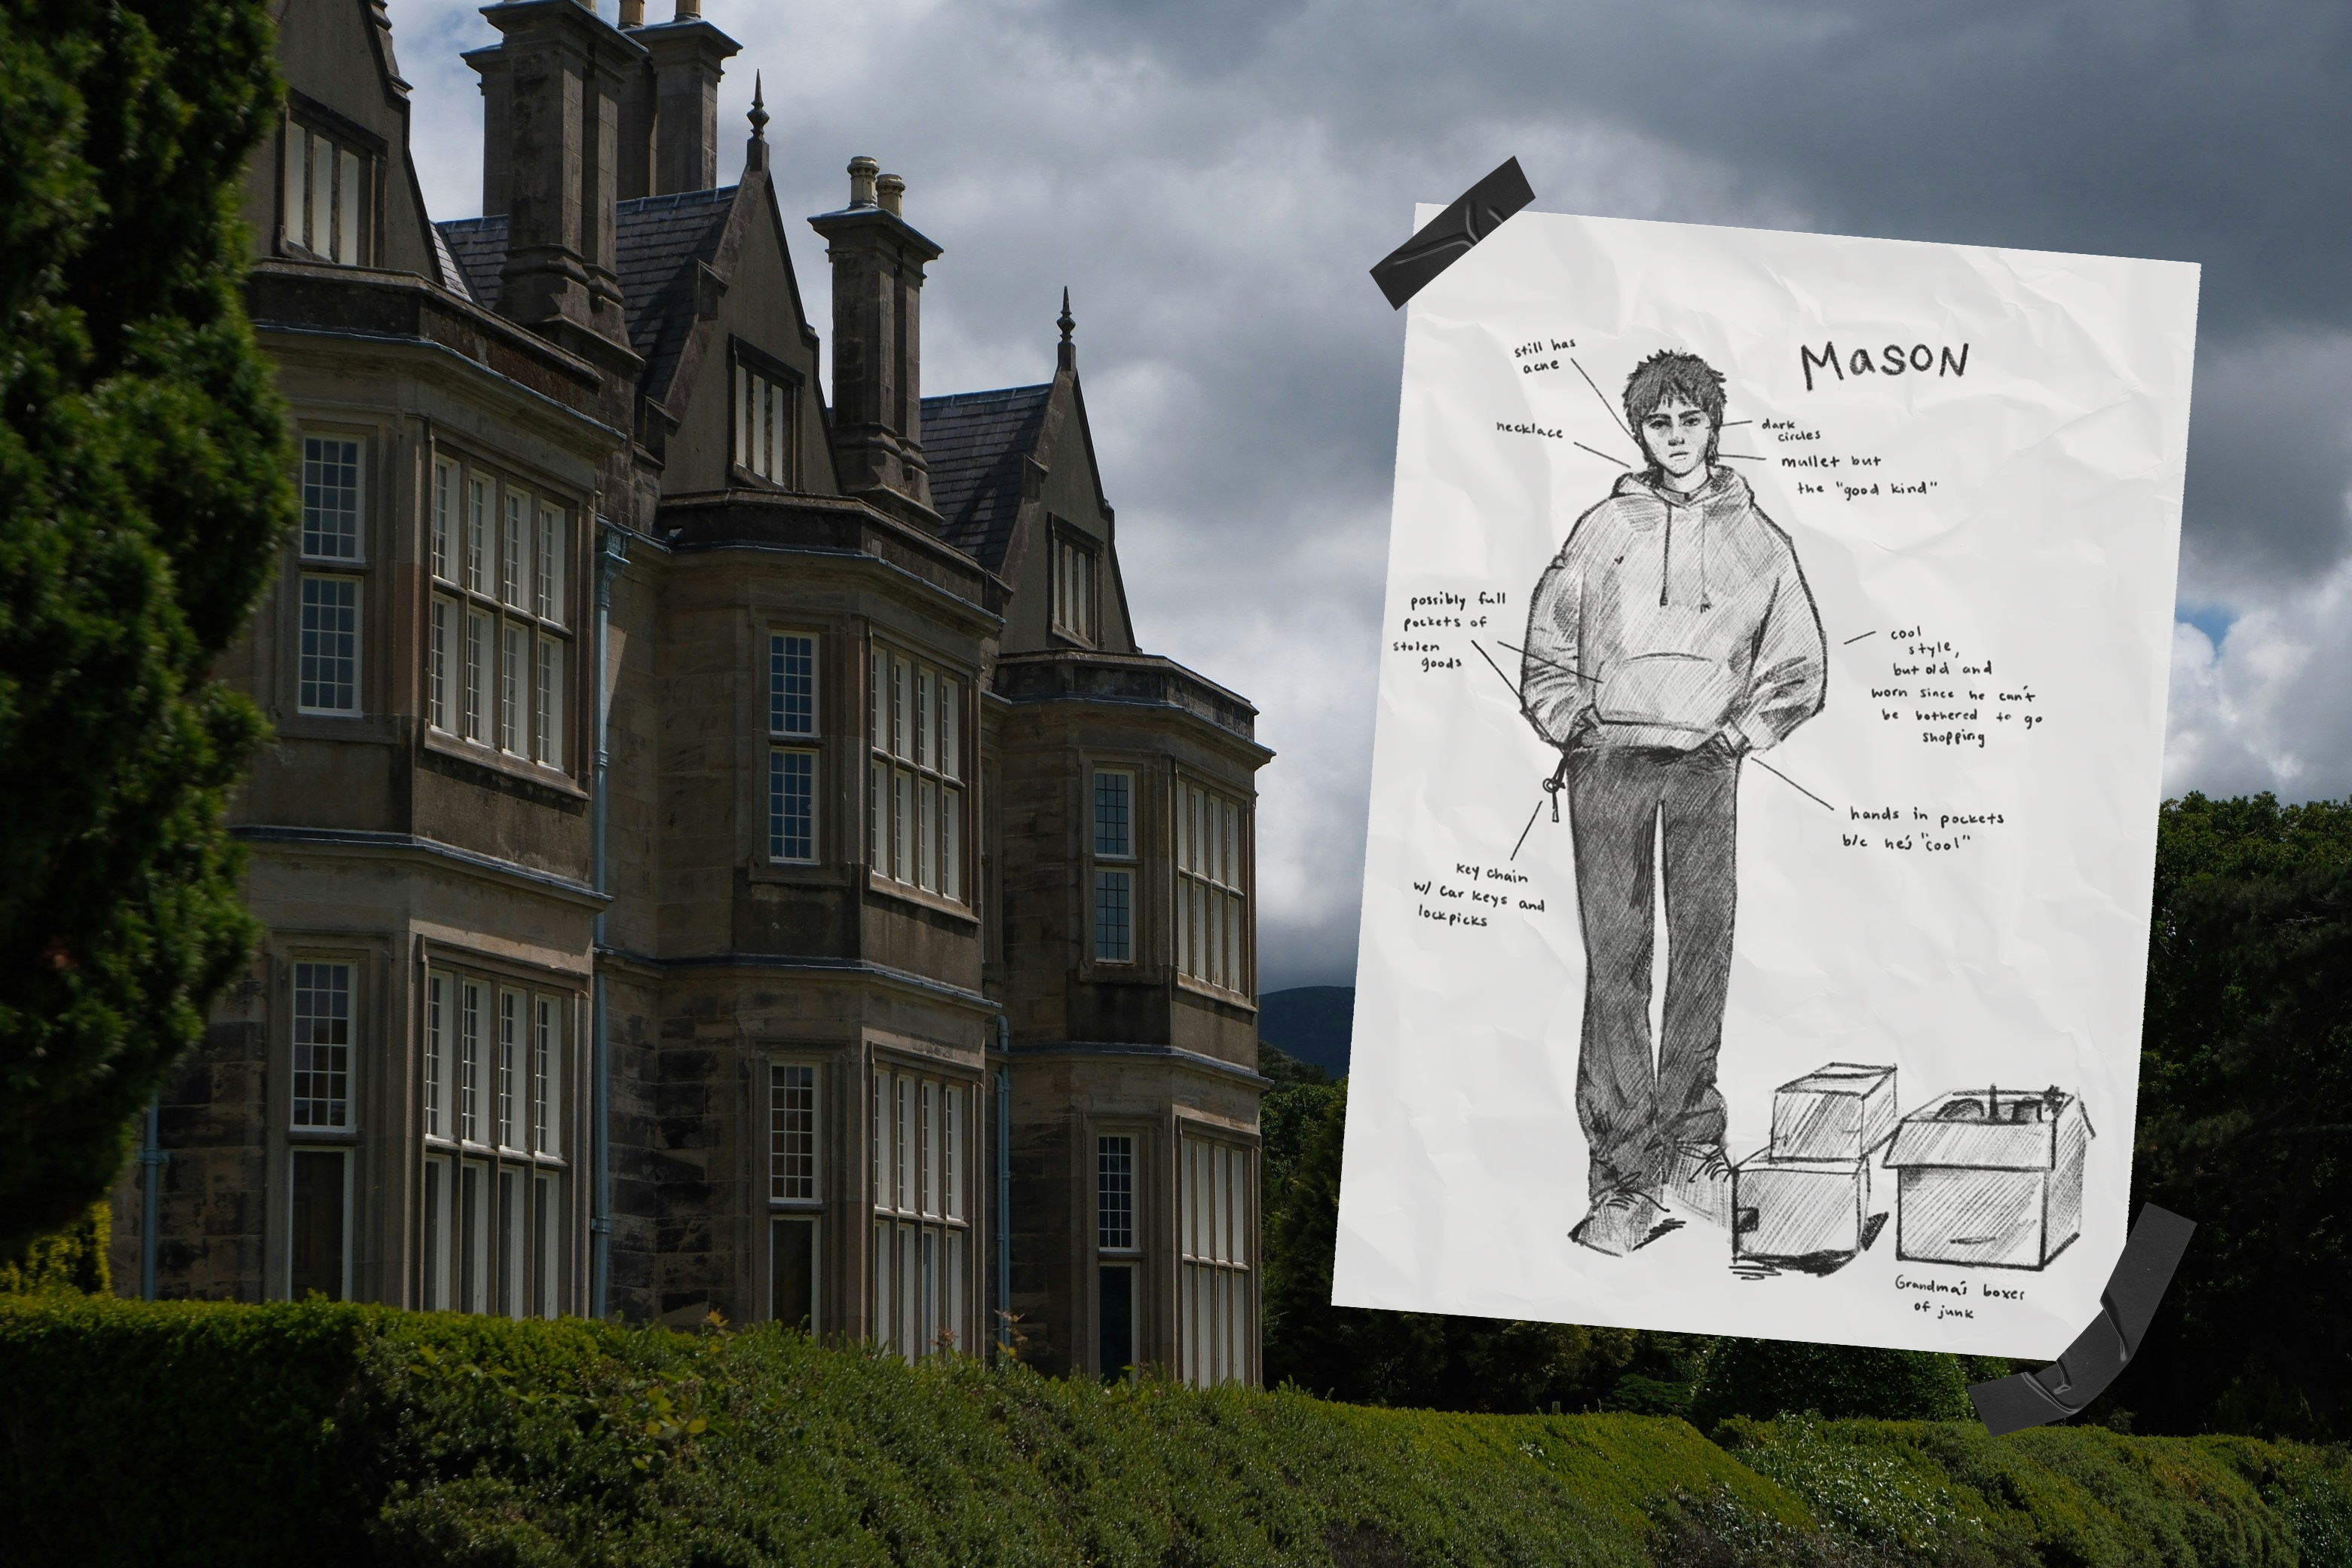 Mason
still has
acne
necklace
dark
circles
mullet but
the "good kind"
possibly full
pockets of
stolen
goods
cool
style,
but old and
worn since he can't
be bothered to go
shopping
hands in pockets
b/c he's "cool"
key chain
w/ car keys and
lockpicks
Grandma's boxes
of junk